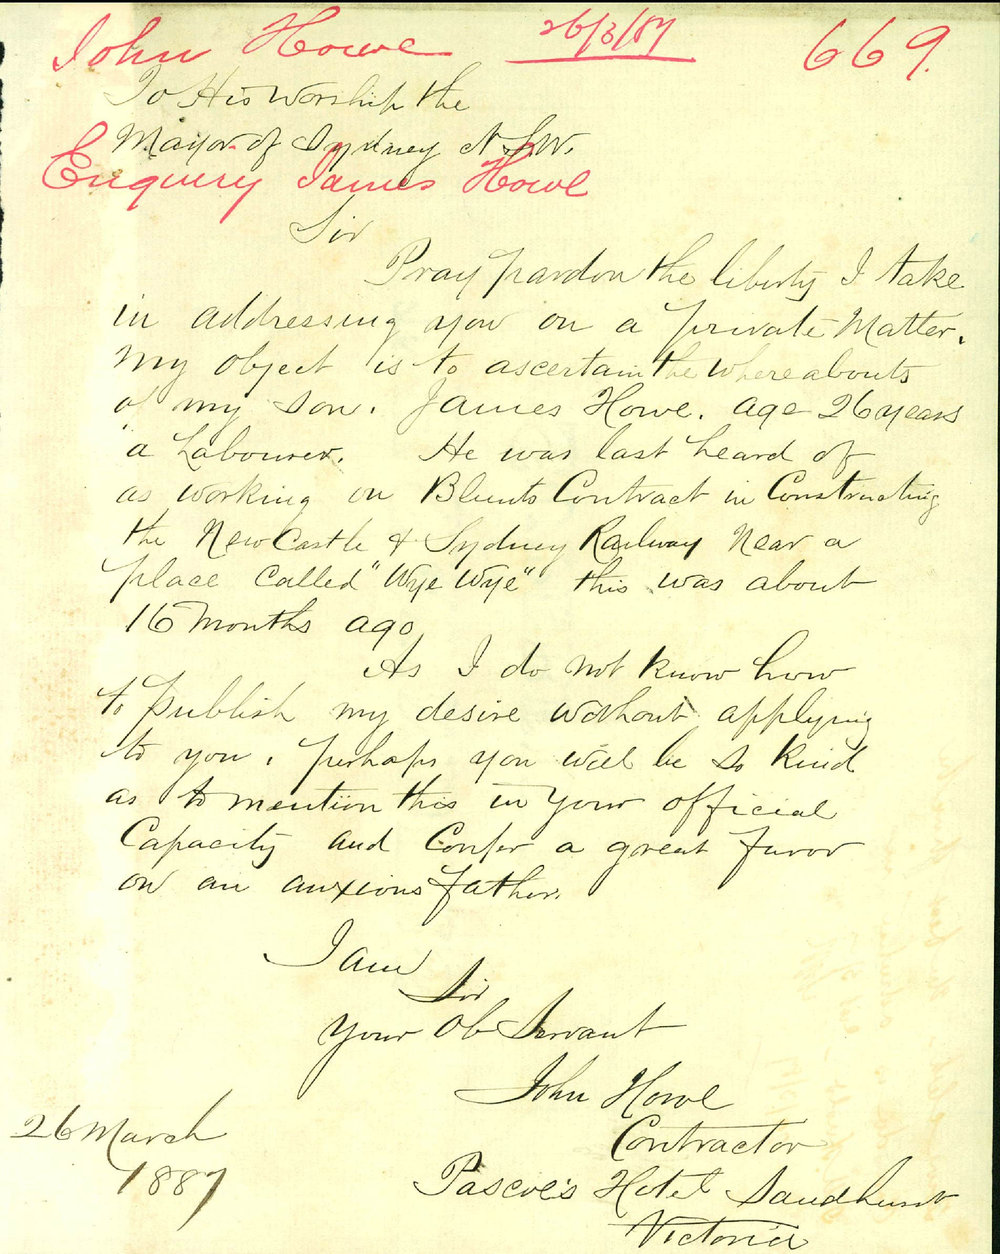 John Howe 26/3/87 669.
To His Worship the
Mayor of Sydney N.S.W.
Enquiry James Howe
Sir
Pray pardon the liberty I take
in addressing you on a private Matter.
My object is to ascertain the whereabouts
of my son. James Howe. age 26 years
a Labourer. He was last heard of
as working on Blunts Contract in Constructing
the New Castle & Sydney Railway Near a
place called "Wye Wye" this was about
16 Months ago
As I do not know how
to publish my desire without applying
to you, perhaps you will be so kind
as to mention this in your official
Capacity and Confer a great favor
on an anxious father.
I am
Sir
Your Ob Servant
John Howe
Contractor
26 March
1887
Pascoe's Hotel Sandhurst
Victoria